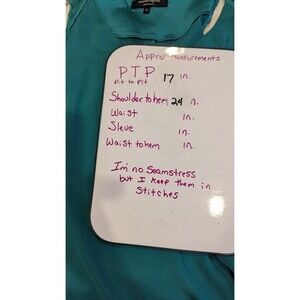 Approx Measurements
PTP 17 in.
pit to pit
Shoulder to hem 24 in.
Waist in.
Sleve in.
Waist to hem in.
I'm no Seamstress
but I keep them in
Stitches